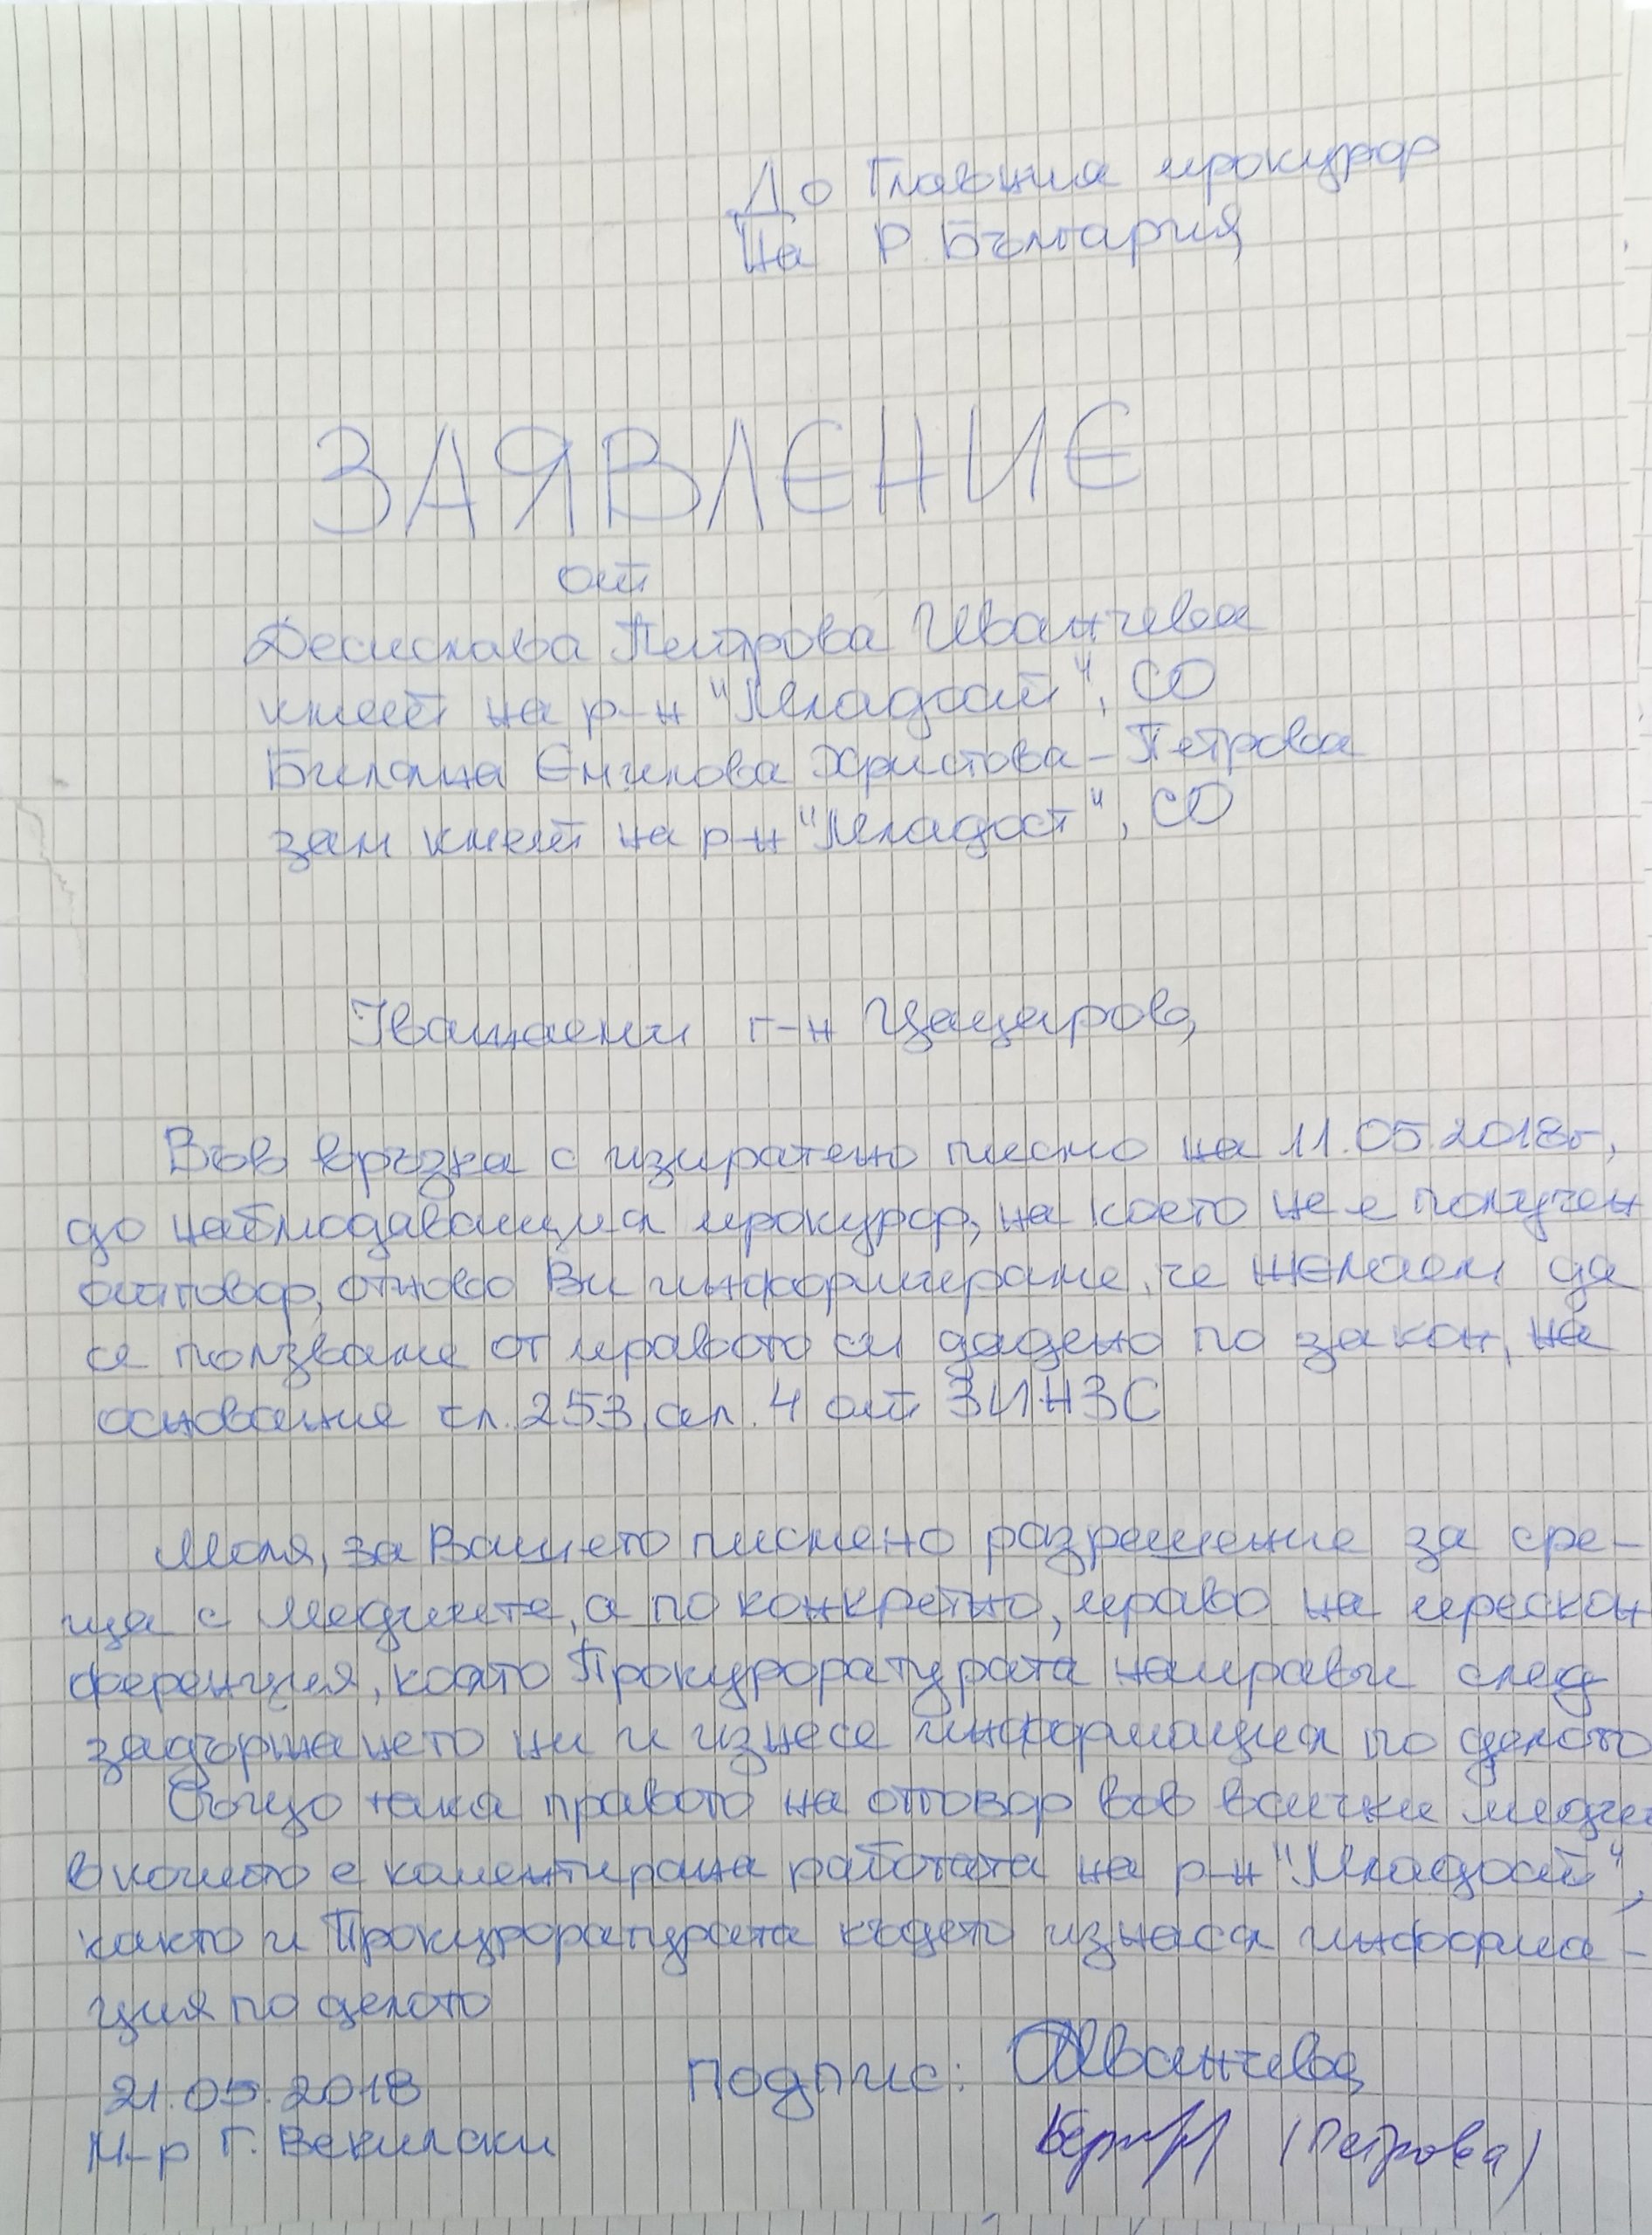 До Главния прокурор
На Р. България
ЗАЯВЛЕНИЕ
от
Десислава Петрова Иванчева
кмет на р-н "Младост", СО
Биляна Емилова Христова-Петрова
зам кмет на р-н "Младост", СО
Уважаеми г-н Цацаров,
Във връзка с изпратено писмо на 11.05.2018г,
до наблюдаващия прокурор, на което не е получен
отговор, отново Ви информираме, че желаем да
се ползваме от правото си дадено по закон, на
основание чл. 253, ал. 4 от ЗИНЗС
Моля, за Вашето писмено разрешение за сре-
ща с медиите, а по конкретно, право на прескон
ференция, която Прокуроратурата направи след
задържането ни и изнесе информация по делото
Също така правото на отговор във всички медии
в които е коментирана работата на р-н "Младост",
както и Прокуроратурата където изнася информа-
ция по делото
21.05.2018
М-р Г. Векилски
Подпис: Иванчева
(Петрова)